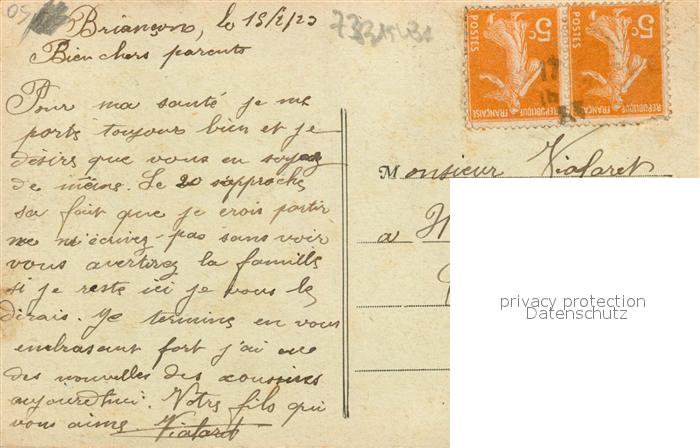 Briançon, le 15/2/23
Bien chers parents
Pour ma santé je me
porte toujours bien et je
désire que vous en soyez
de même. Le 20 s'approche
sa fait que je crois partir
ne m'écrivez pas sans voir
vous avertirez la famille
si je reste ici je vous le
dirais. Je termine en vous
embrasant fort j'ai eue
des nouvelles des cousines
aujourdhui. Notre fils qui
vous aime Vialaret
5c POSTES
REPUBLIQUE FRANÇAISE
5c POSTES
REPUBLIQUE FRANÇAISE
Monsieur Vialaret
a
privacy protection
Datenschutz